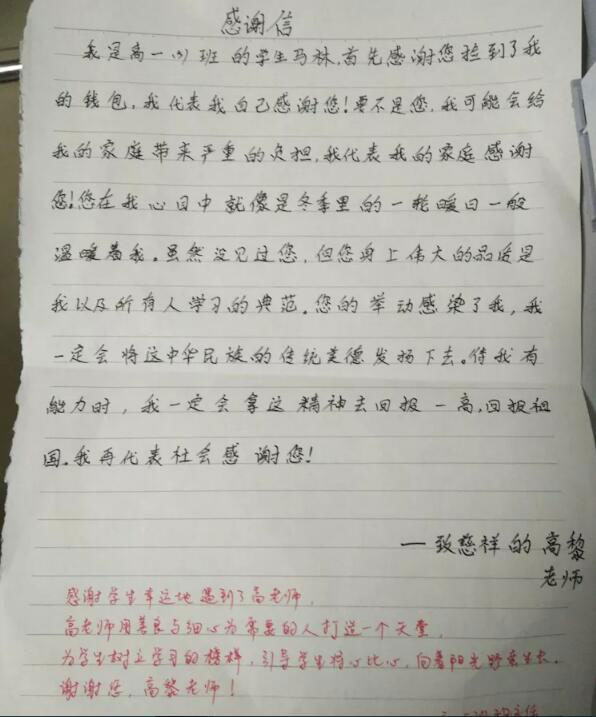 感谢信
我是高一(3)班的学生马林,首先感谢您捡到了我
的钱包,我代表我自己感谢您!要不是您,我可能会给
我的家庭带来严重的负担,我代表我的家庭感谢
您!您在我心目中就像是冬季里的一轮暖日一般
温暖着我。虽然没见过您,但您身上伟大的品质是
我以及所有人学习的典范。您的举动感染了我,我
一定会将这中华民族的传统美德发扬下去。待我有
能力时,我一定会拿这精神去回报一高,回报祖
国。我再代表社会感谢您!
—致慈祥的高黎
老师
感谢学生幸运地遇到了高老师,
高老师用善良与细心为需要的人打造一个天堂,
为学生树立学习的榜样,引导学生将心比心,向着阳光野蛮生长。
谢谢您,高黎老师!
班主任